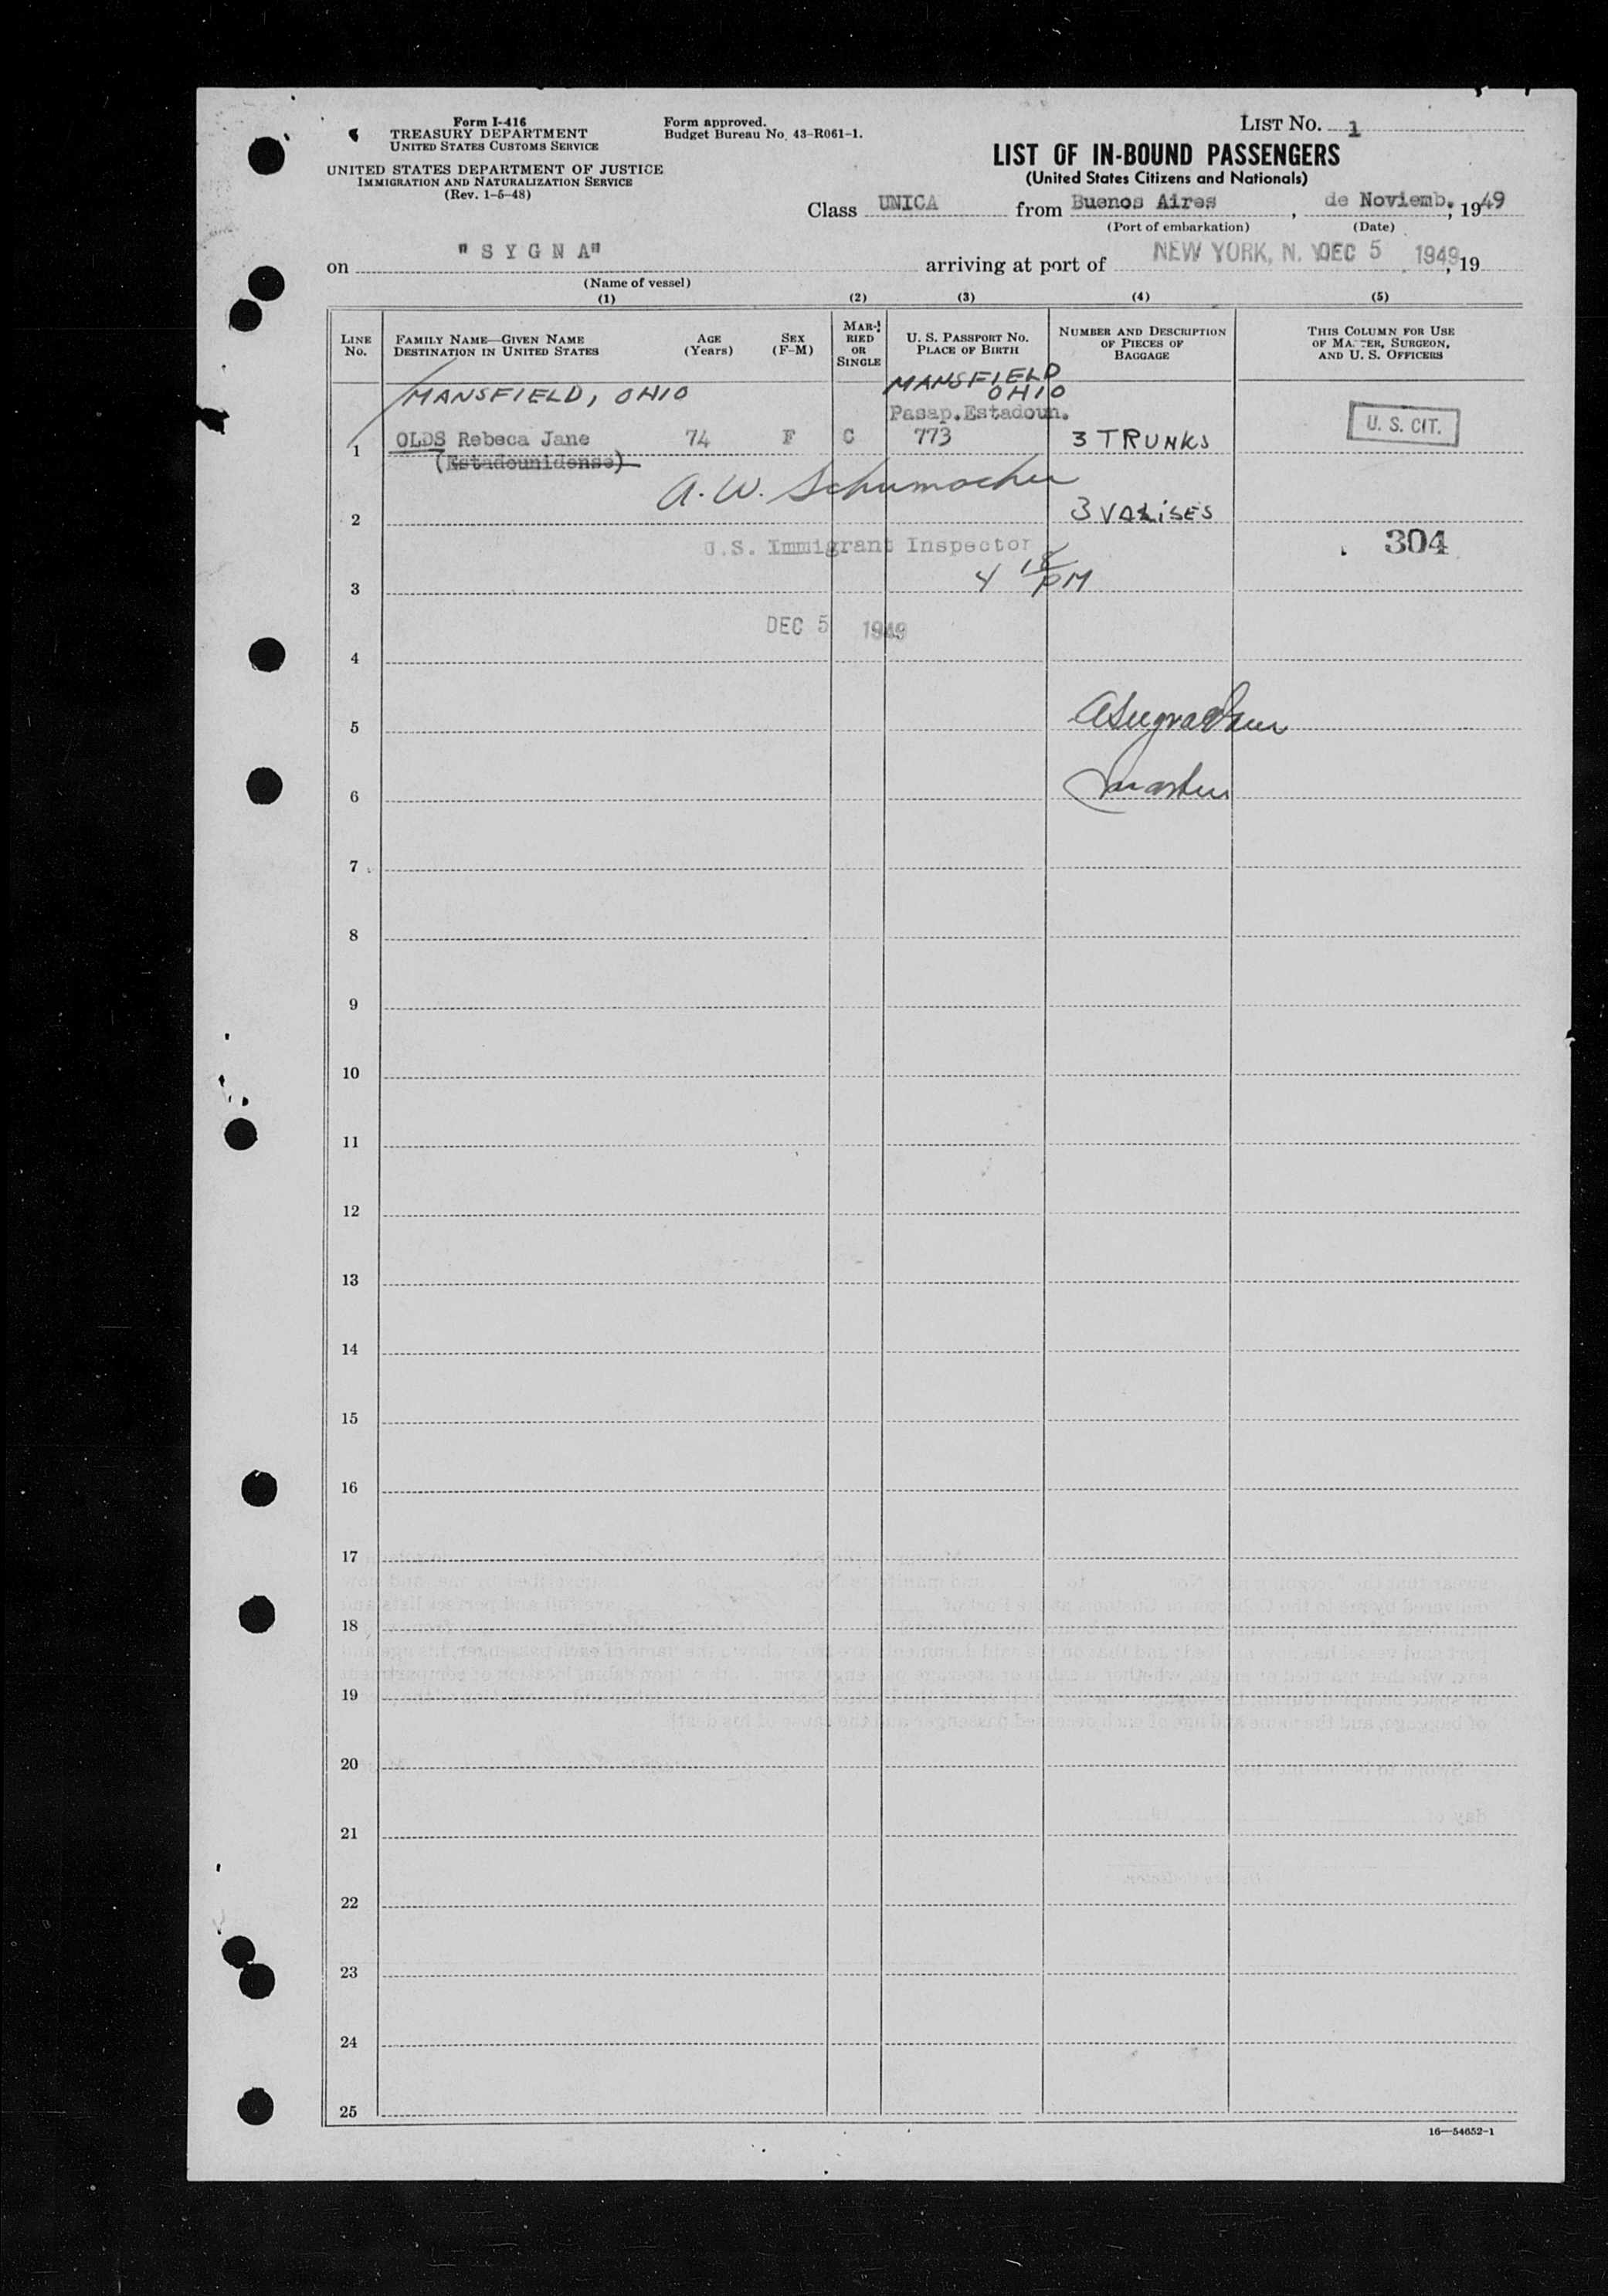 Form I-416
TREASURY DEPARTMENT
UNITED STATES CUSTOMS SERVICE
UNITED STATES DEPARTMENT OF JUSTICE
IMMIGRATION AND NATURALIZATION SERVICE
(Rev. 1-5-48)
Form approved.
Budget Bureau No. 43-R061-1.
LIST NO. 1
LIST OF IN-BOUND PASSENGERS
(United States Citizens and Nationals)
Class UNICA from Buenos Aires, de Noviemb., 1949
(Port of embarkation) (Date)
on "SYGNA" arriving at port of NEW YORK, N. Y. DEC 5 1949, 19
(Name of vessel)
(1) (2) (3) (4) (5)
LINE NO.
FAMILY NAME—GIVEN NAME
DESTINATION IN UNITED STATES
AGE (Years)
SEX (F-M)
MARRIED OR SINGLE
U. S. PASSPORT NO.
PLACE OF BIRTH
NUMBER AND DESCRIPTION OF PIECES OF BAGGAGE
THIS COLUMN FOR USE OF MASTER, SURGEON, AND U. S. OFFICERS
MANSFIELD, OHIO MANSFIELD OHIO
Pasap. Estadoun.
1 OLDS Rebeca Jane 74 F C 773 3 TRUNKS U. S. CIT.
(Estadounidense)
A. W. Schumacher
2 3 VALISES
U.S. Immigrant Inspector 304
3 4 18 PM
DEC 5 1949
4
5
6 master
7
8
9
10
11
12
13
14
15
16
17
18
19
20
21
22
23
24
25
16—54652-1